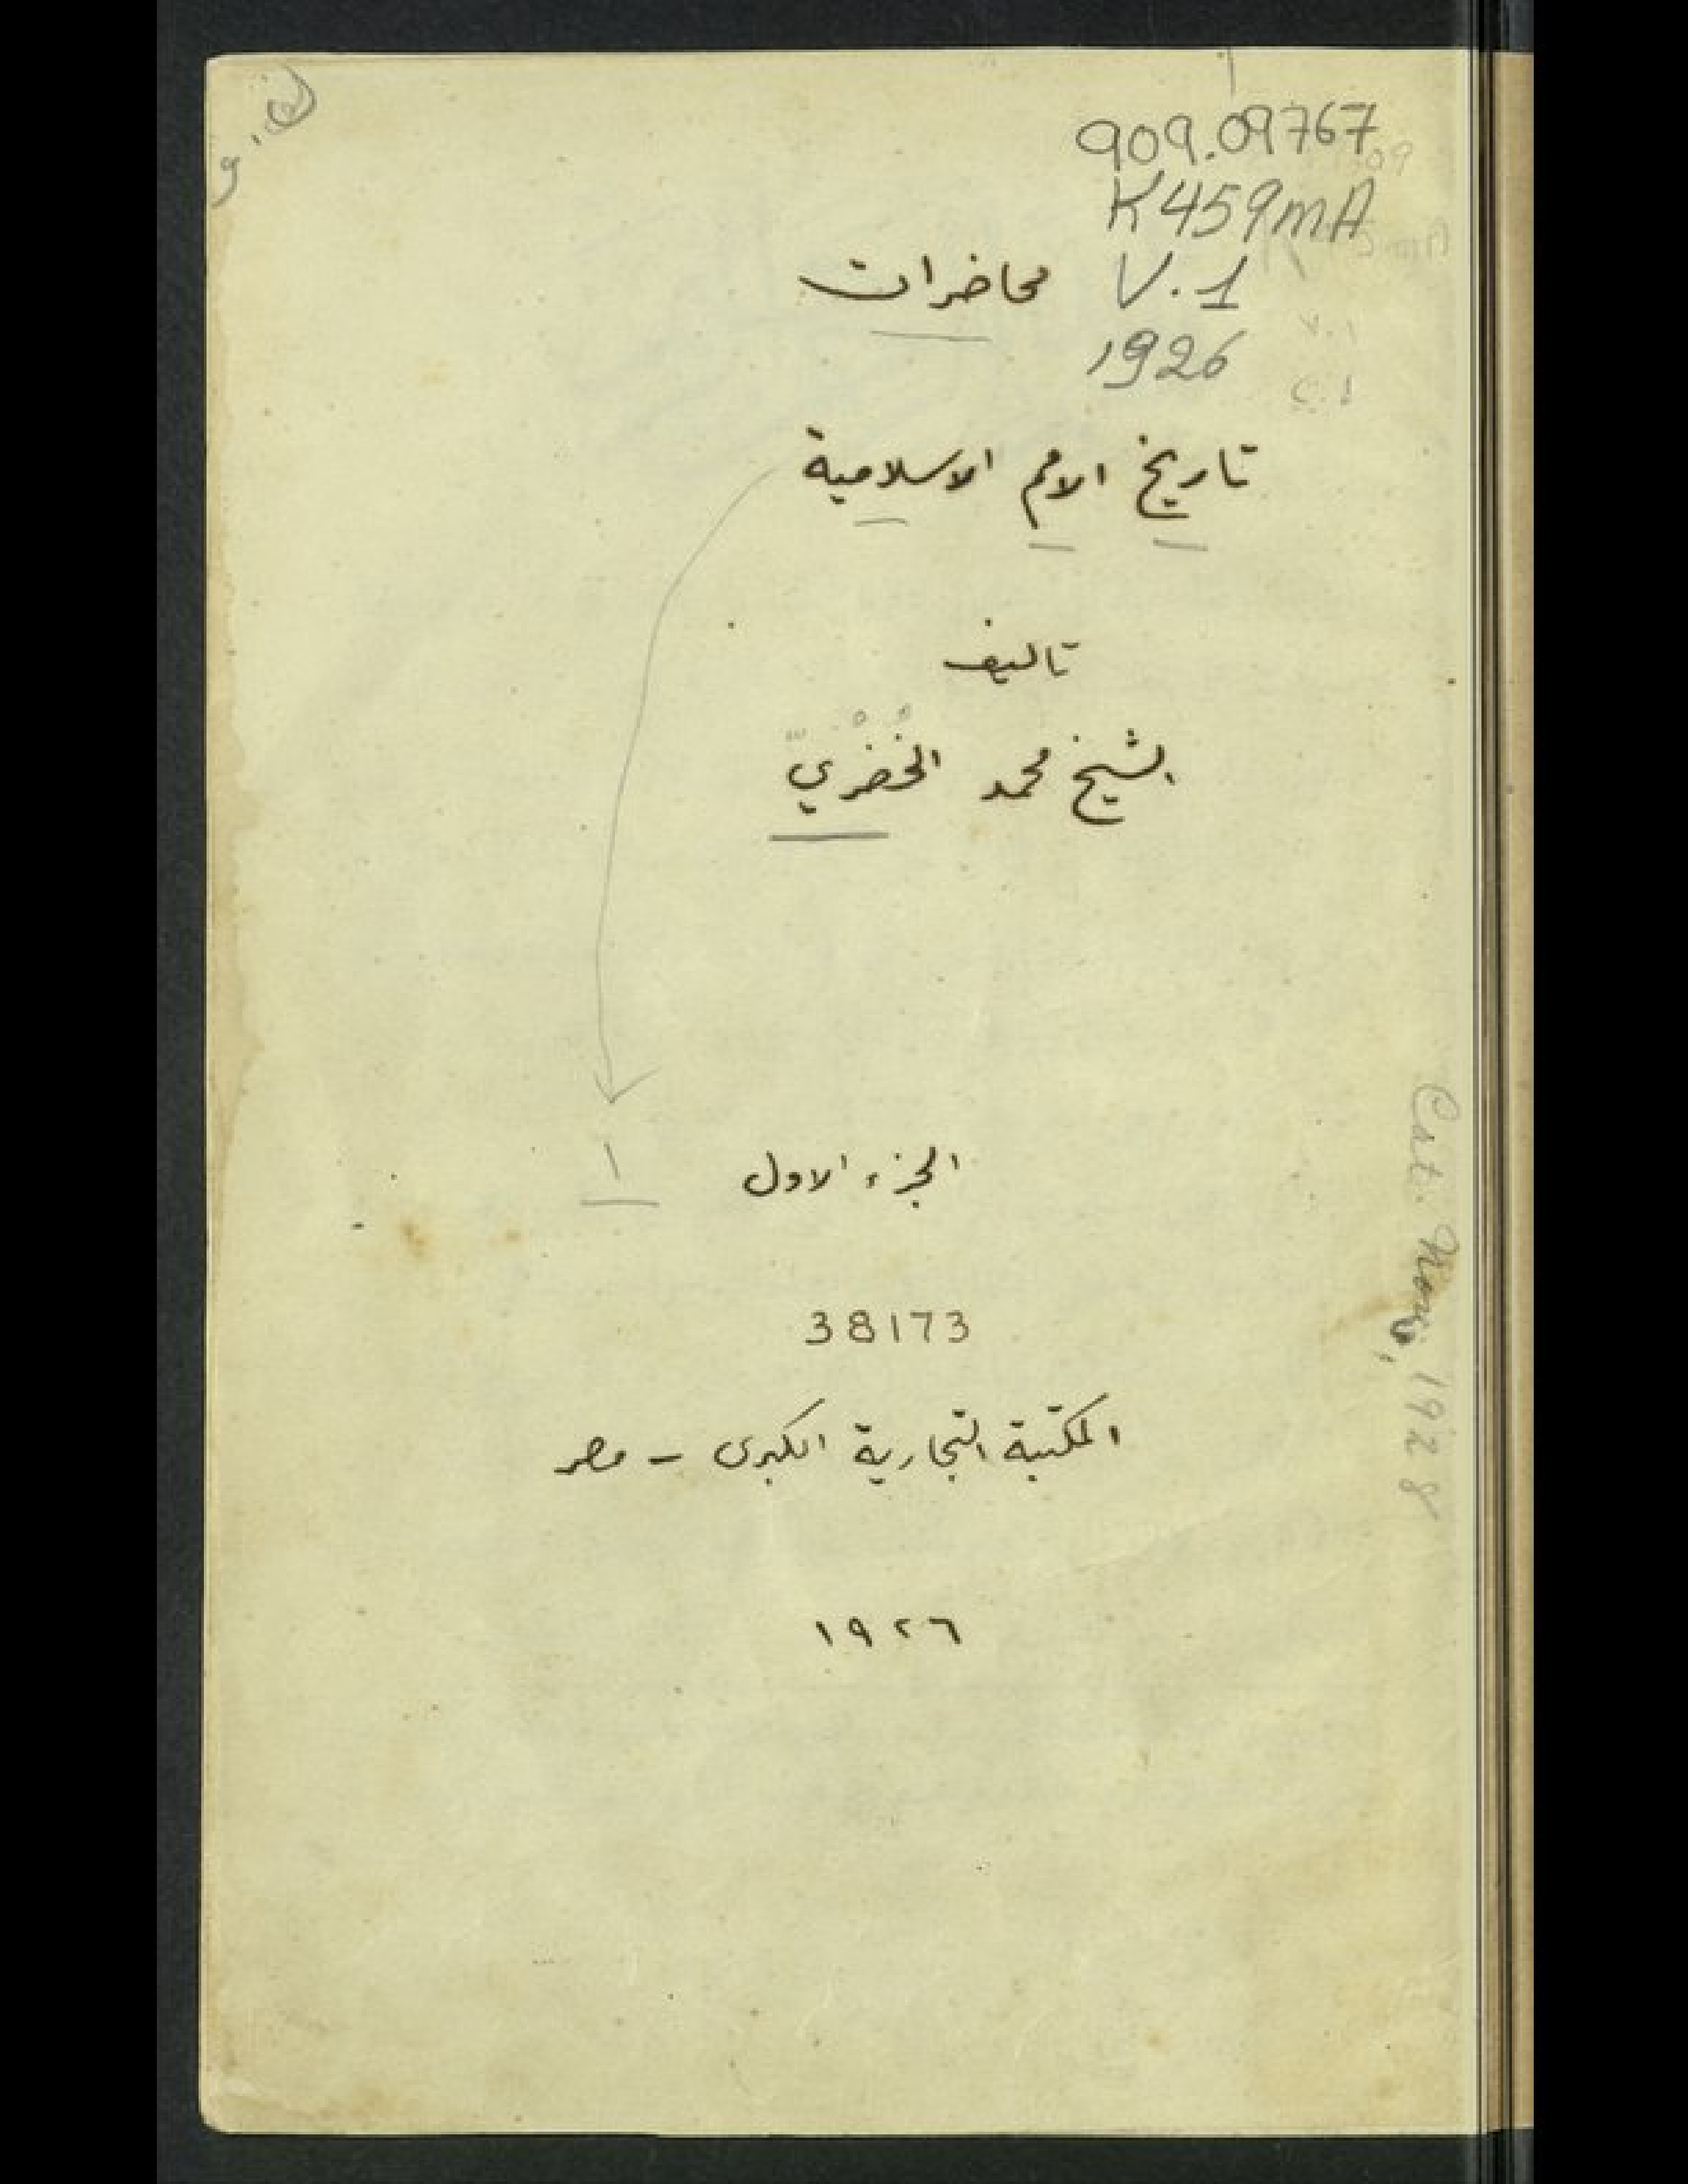 909.09767
K459mA
محاضرات V.1
1926
تاريخ الامم الاسلامية
تاليف
الشيخ محمد الخُضْريّ
الجزء الاول ١
38173
المكتبة التجارية الكبرى - مصر
١٩٢٦
Cat. Nov. 1928